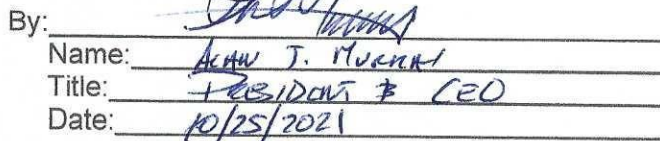 By:
Name: Alan J. Murray
Title: President & CEO
Date: 10/25/2021